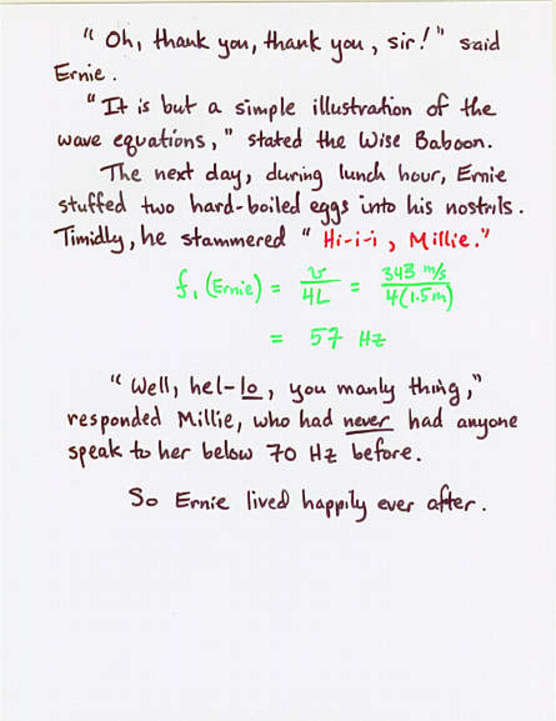 "Oh, thank you, thank you, sir!" said
Ernie.
"It is but a simple illustration of the
wave equations," stated the Wise Baboon.
The next day, during lunch hour, Ernie
stuffed two hard-boiled eggs into his nostrils.
Timidly, he stammered "Hi-i-i, Millie."
f₁ (Ernie) = v/4L = 343 m/s / 4(1.5m)
= 57 Hz
"Well, hel-lo, you manly thing,"
responded Millie, who had never had anyone
speak to her below 70 Hz before.
So Ernie lived happily ever after.